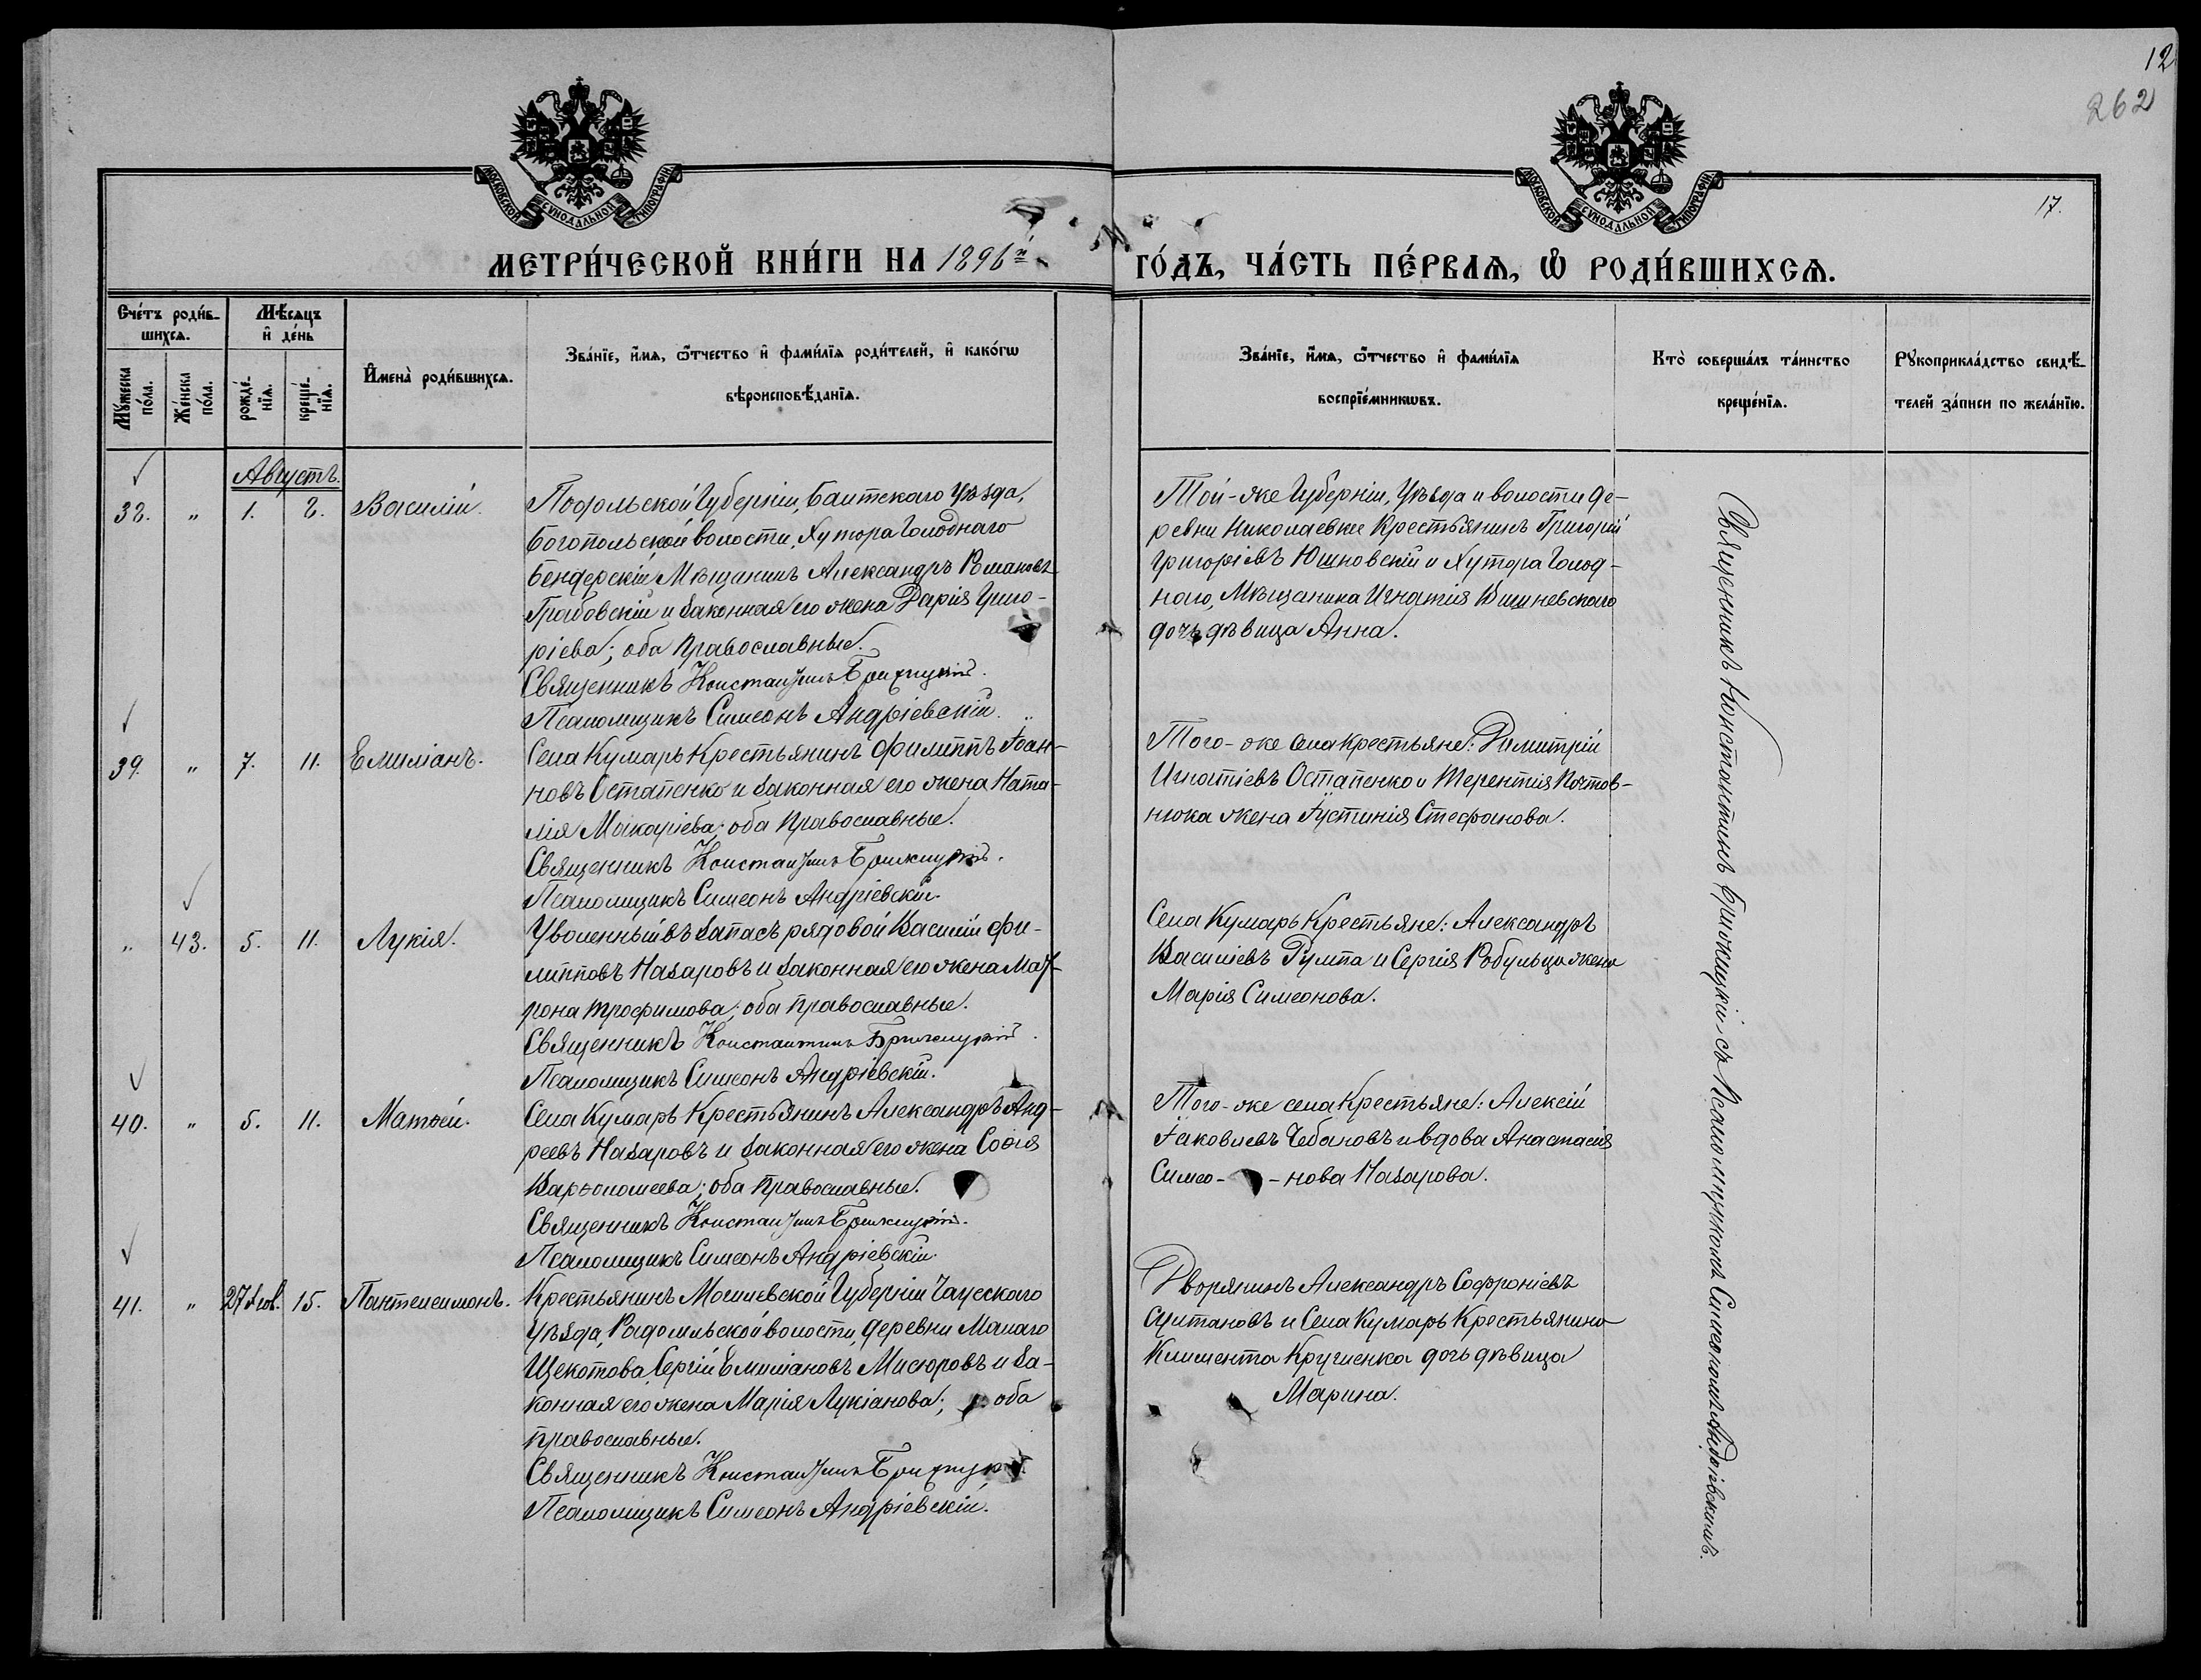 12
262
17.
МОСКОВСКОЙ СУНОДАЛЬНОЙ ТИПОГРАФІИ
МОСКОВСКОЙ СУНОДАЛЬНОЙ ТИПОГРАФІИ
МЕТРИ́ЧЕСКОЙ КНИ́ГИ НА 1896й
ГО́ДЪ, ЧА́СТЬ ПЕ́РВАѦ, Ѡ РОДИ́ВШИХСѦ.
Сче́тъ роди́в-
шихсѧ.
Мꙋ́жеска
по́ла.
Же́нска
по́ла.
Мѣ́сѧцъ
и҆ де́нь
рожде́-
нїѧ.
креще́-
нїѧ.
И҆мена̀ роди́вшихсѧ.
Зва́нїе, и҆́мѧ, ѻ҆́тчество и҆ фами́лїѧ роди́телей, и҆ како́гѡ
вѣроисповѣ́данїѧ.
Зва́нїе, и҆́мѧ, ѻ҆́тчество и҆ фами́лїѧ
воспрїе́мникѡвъ.
Кто̀ соверша́лъ та́инство
креще́нїѧ.
Рꙋкоприкла́дство свидѣ́-
телей за́писи по жела́нїю.
Августъ.
38. " 1. 2. Василій.
Подольской Губерніи, Балтскаго Уѣзда,
Богопольской волости, Хутора Голоднаго
Бендерскій Мѣщанинъ Александръ Романовъ
Грабовскій и законная его жена Дарія Григо-
ріева; оба православные.
Священникъ Константинъ Брижицкій.
Псаломщикъ Симеонъ Андріевскій.
Той-же Губерніи, Уѣзда и волости де-
ревни Николаевки Крестьянинъ Григорій
Григоріевъ Юшновскій и Хутора Голод-
наго, Мѣщанина Игнатія Вишневскаго
дочь дѣвица Анна.
39. " 7. 11. Емиліанъ.
Села Кумаръ Крестьянинъ Филиппъ Іоан-
новъ Остапенко и законная его жена Ната-
лія Макаріева; оба православные.
Священникъ Константинъ Брижицкій.
Псаломщикъ Симеонъ Андріевскій.
Того-же села Крестьяне: Димитрій
Игнатіевъ Остапенко и Терентія Полтов-
нюка жена Іустинія Стефанова.
" 43. 5. 11. Лукія.
Уволенный въ запасъ рядовой Василій Фи-
липповъ Назаровъ и законная его жена Мат-
рона Трофимова; оба православные.
Священникъ Константинъ Брижицкій.
Псаломщикъ Симеонъ Андріевскій.
Села Кумаръ Крестьяне: Александръ
Василіевъ Румпа и Сергія Робульца жена
Марія Симеонова.
40. " 5. 11. Матѳей.
Села Кумаръ Крестьянинъ Александръ Анд-
реевъ Назаровъ и законная его жена Софія
Варѳоломеева; оба православные.
Священникъ Константинъ Брижицкій.
Псаломщикъ Симеонъ Андріевскій.
Того-же села Крестьяне: Алексій
Іаковлевъ Чебановъ и вдова Анастасія
Симео- -нова Назарова.
41. " 27 Іюл. 15. Пантелеимонъ.
Крестьянинъ Могилевской Губерніи Чаусскаго
Уѣзда, Радомльской волости, деревни Малаго
Щекотова, Сергій Емиліановъ Мисюровъ и за-
конная его жена Марія Лукіанова; оба
православные.
Священникъ Константинъ Брижицкій.
Псаломщикъ Симеонъ Андріевскій.
Дворянинъ Александръ Софроніевъ
Султановъ и Села Кумаръ Крестьянина
Климента Кругленка дочь дѣвица
Марина.
Священникъ Константинъ Брижицкій съ Псаломщикомъ Симеономъ Андріевскимъ.